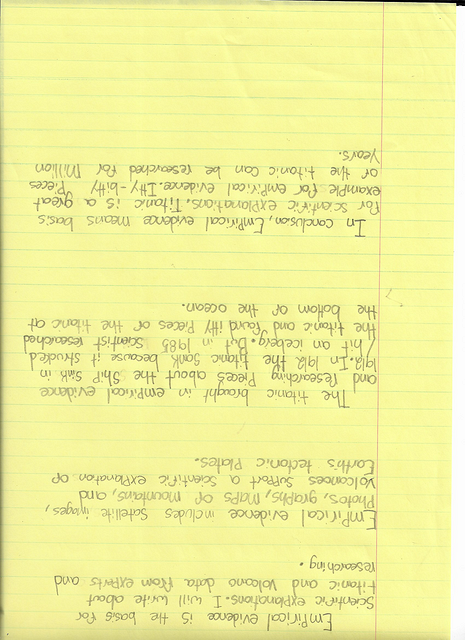 Empirical evidence is the basis for
Scientific explanations. I will write about
titanic and Volcano data from experts and
researching.
Empirical evidence includes satellite images,
Photos, graphs, maps of mountains, and
Volcanoes support a scientific explanation of
Earth's tectonic Plates.
The titanic brought in empirical evidence
and researching Pieces about the ship sink in
1912. In 1912 the titanic sank because it
/hit an iceberg. But in 1985 Scientist researched
the titanic and found itti Pieces of the titanic at
the bottom of the ocean.
In conclusion, Empirical evidence means basis
for scientific explanations. Titanic is a great
example for empirical evidence. Itty-bitty Pieces
of the titanic can be researched for Million
Years.